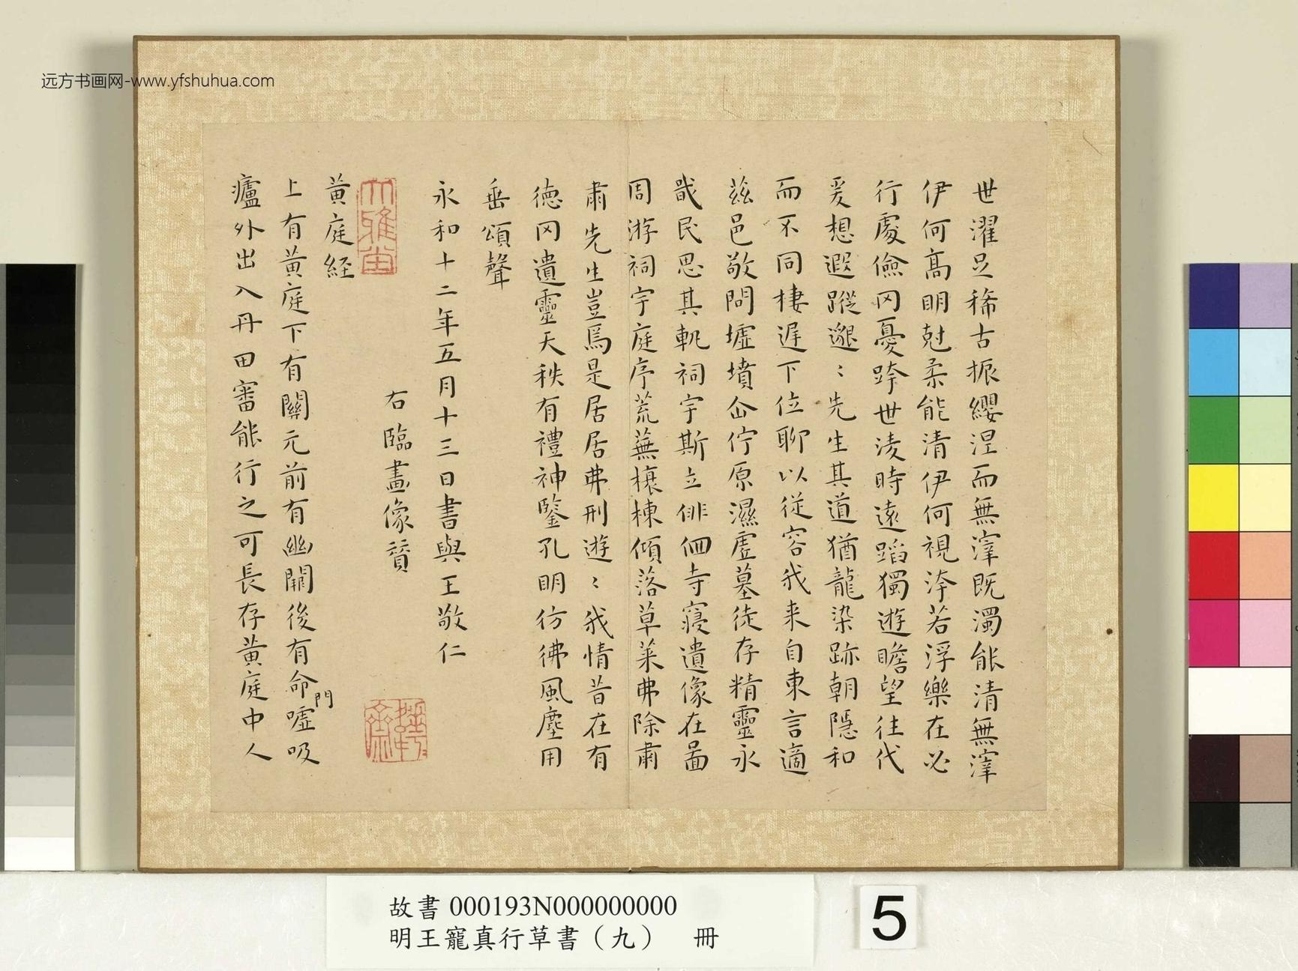 远方书画网-www.yfshuhua.com
世濯足稀古振纓涅而無滓既濁能清無滓
伊何高明剋柔能清伊何視洿若浮樂在必
行處儉罔憂跨世淩時遠蹈獨遊瞻望往代
爰想遐蹤邈〻先生其道猶龍染跡朝隱和
而不同棲遲下位聊以從容我來自東言適
茲邑敬問墟墳企佇原濕虛墓徒存精靈永
戢民思其軌祠宇斯立徘徊寺寢遺像在圖
周游祠宇庭序荒蕪榱棟傾落草萊弗除肅
肅先生豈焉是居居弗刑遊〻我情昔在有
德罔遺靈天秩有禮神鑒孔明彷彿風塵用
垂頌聲
永和十二年五月十三日書與王敬仁
右臨畫像贊
大雅堂
黃庭經
上有黃庭下有關元前有幽闕後有命門噓吸
廬外出入丹田審能行之可長存黃庭中人
故書 000193N000000000
明王寵真行草書（九） 冊
5